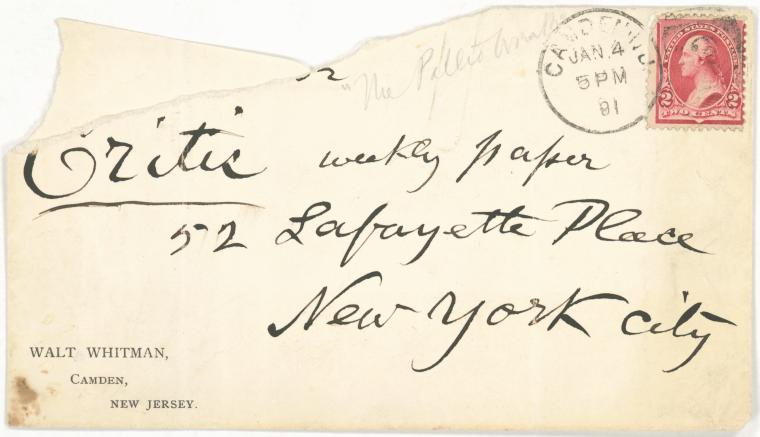 "The
CAMDEN, N.J.
JAN. 4
5 PM
91
UNITED STATES POSTAGE
2 2
TWO CENTS
Critic weekly paper
52 Lafayette Place
New York city
WALT WHITMAN,
CAMDEN,
NEW JERSEY.